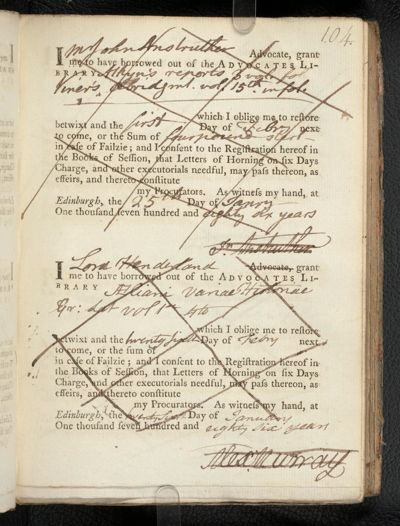 104.
I Mr John Anstruther Advocate, grant
me to have borrowed out of the ADVOCATES LI-
BRARY Atkyn's reports 3 vols fol
Viner's Abridgmt. vol 15th in folo
which I oblige me to restore
betwixt and the first Day of Febry next
to come, or the Sum of four pound ster
in case of Failzie; and I consent to the Registration hereof in
the Books of Session, that Letters of Horning on six Days
Charge, and other executorials needful, may pass thereon, as
effeirs, and thereto constitute
my Procurators. As witness my hand, at
Edinburgh, the 25th Day of Janry
One thousand seven hundred and eighty six years
Jn. Anstruther
I Lord Henderland Advocate, grant
me to have borrowed out of the ADVOCATES LI-
BRARY Aeliani Variae Historiae
Gr: Lat Vol 1st 4to
which I oblige me to restore
betwixt and the twenty sixth Day of Febry next
to come, or the sum of
in case of Failzie; and I consent to the Registration hereof in
the Books of Session, that Letters of Horning on six Days
Charge, and other executorials needful, may pass thereon, as
effeirs, and thereto constitute
my Procurators. As witness my hand, at
Edinburgh, the Day of January
One thousand seven hundred and eighty six years
Alexr. Murray